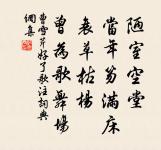 陋室空堂
當年笏滿床
衰草枯楊
曾為歌舞場
曹雪芹好了歌注詞典
網集